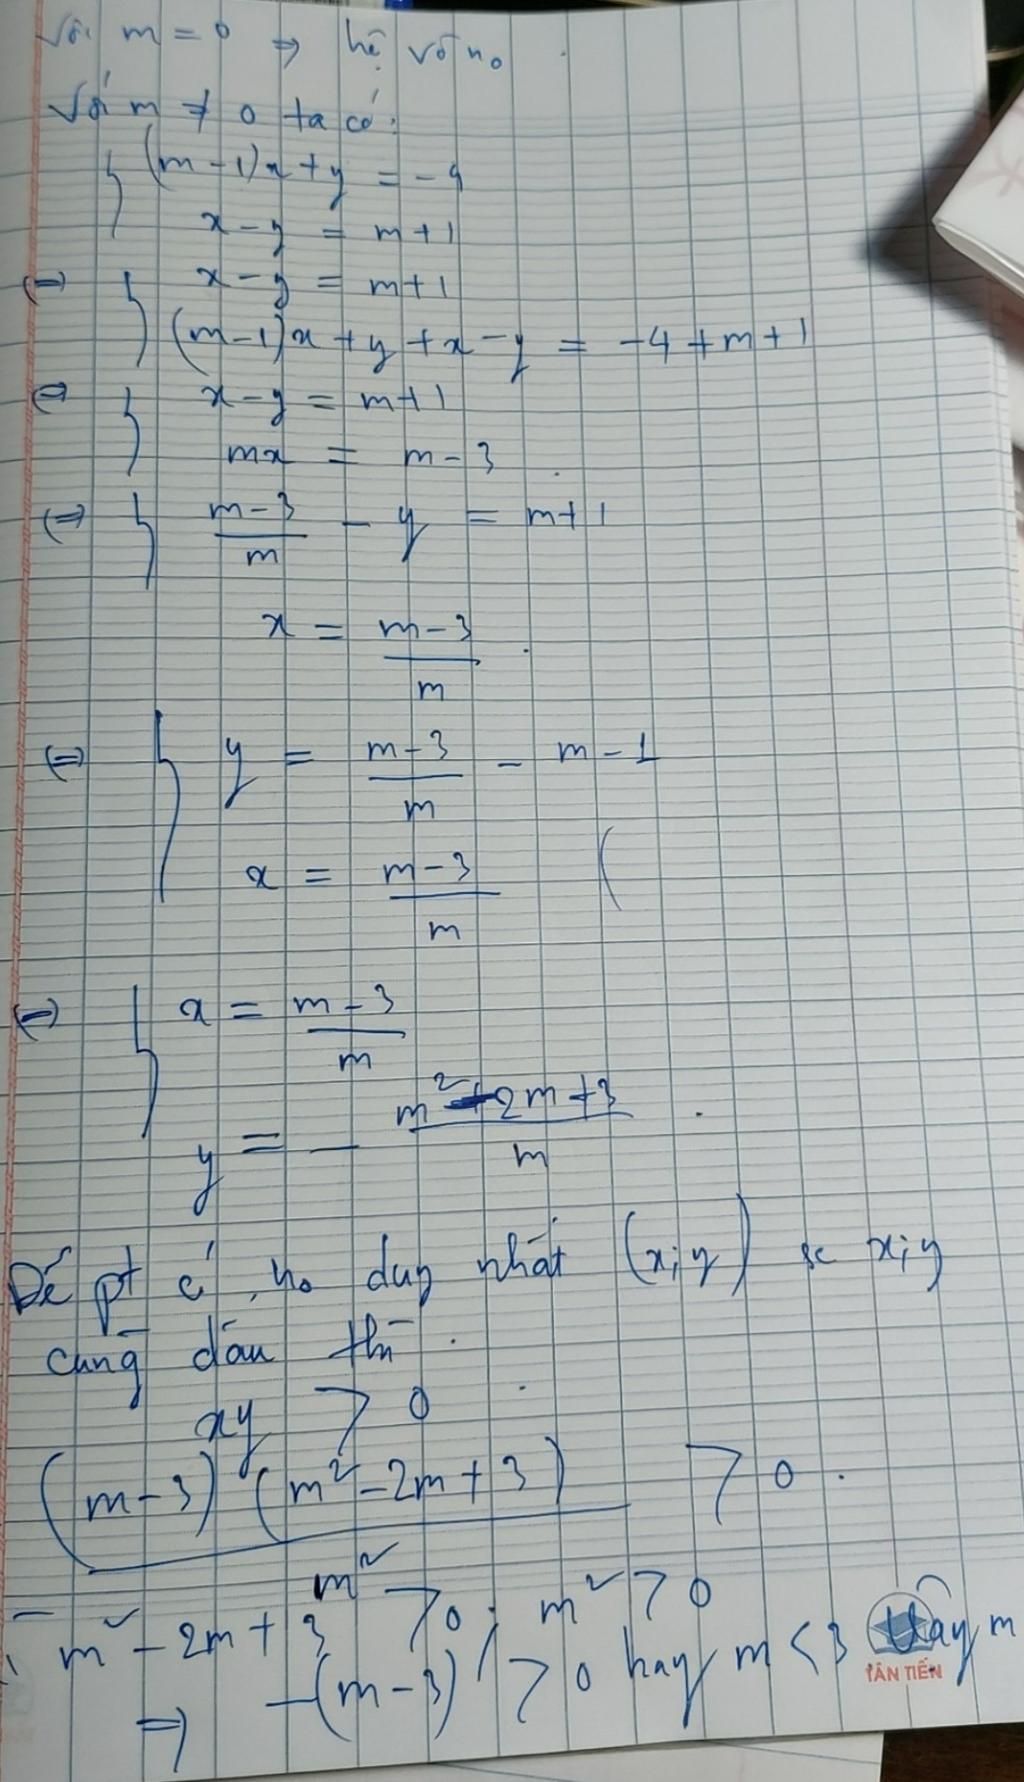 Với m = 0 ⇒ hệ vô n₀
Với m ≠ 0 ta có:
{ (m-1)x + y = -4
x - y = m+1
⇔ { x - y = m+1
(m-1)x + y + x - y = -4 + m + 1
⇔ { x - y = m+1
mx = m - 3
⇔ { \frac{m-3}{m} - y = m+1
x = \frac{m-3}{m}
⇔ { y = \frac{m-3}{m} - m - 1
x = \frac{m-3}{m} (
⇔ { x = \frac{m-3}{m}
y = - \frac{m² + 2m + 3}{m}
Để pt có n₀ duy nhất (x; y) x; y
cùng dấu thì
xy > 0
\frac{(m-3) (m² - 2m + 3)}{m²} > 0
m² - 2m + 3 > 0; m² > 0
⇒ -(m-3) > 0 hay m < 3 Vậy m
TÂN TIẾN